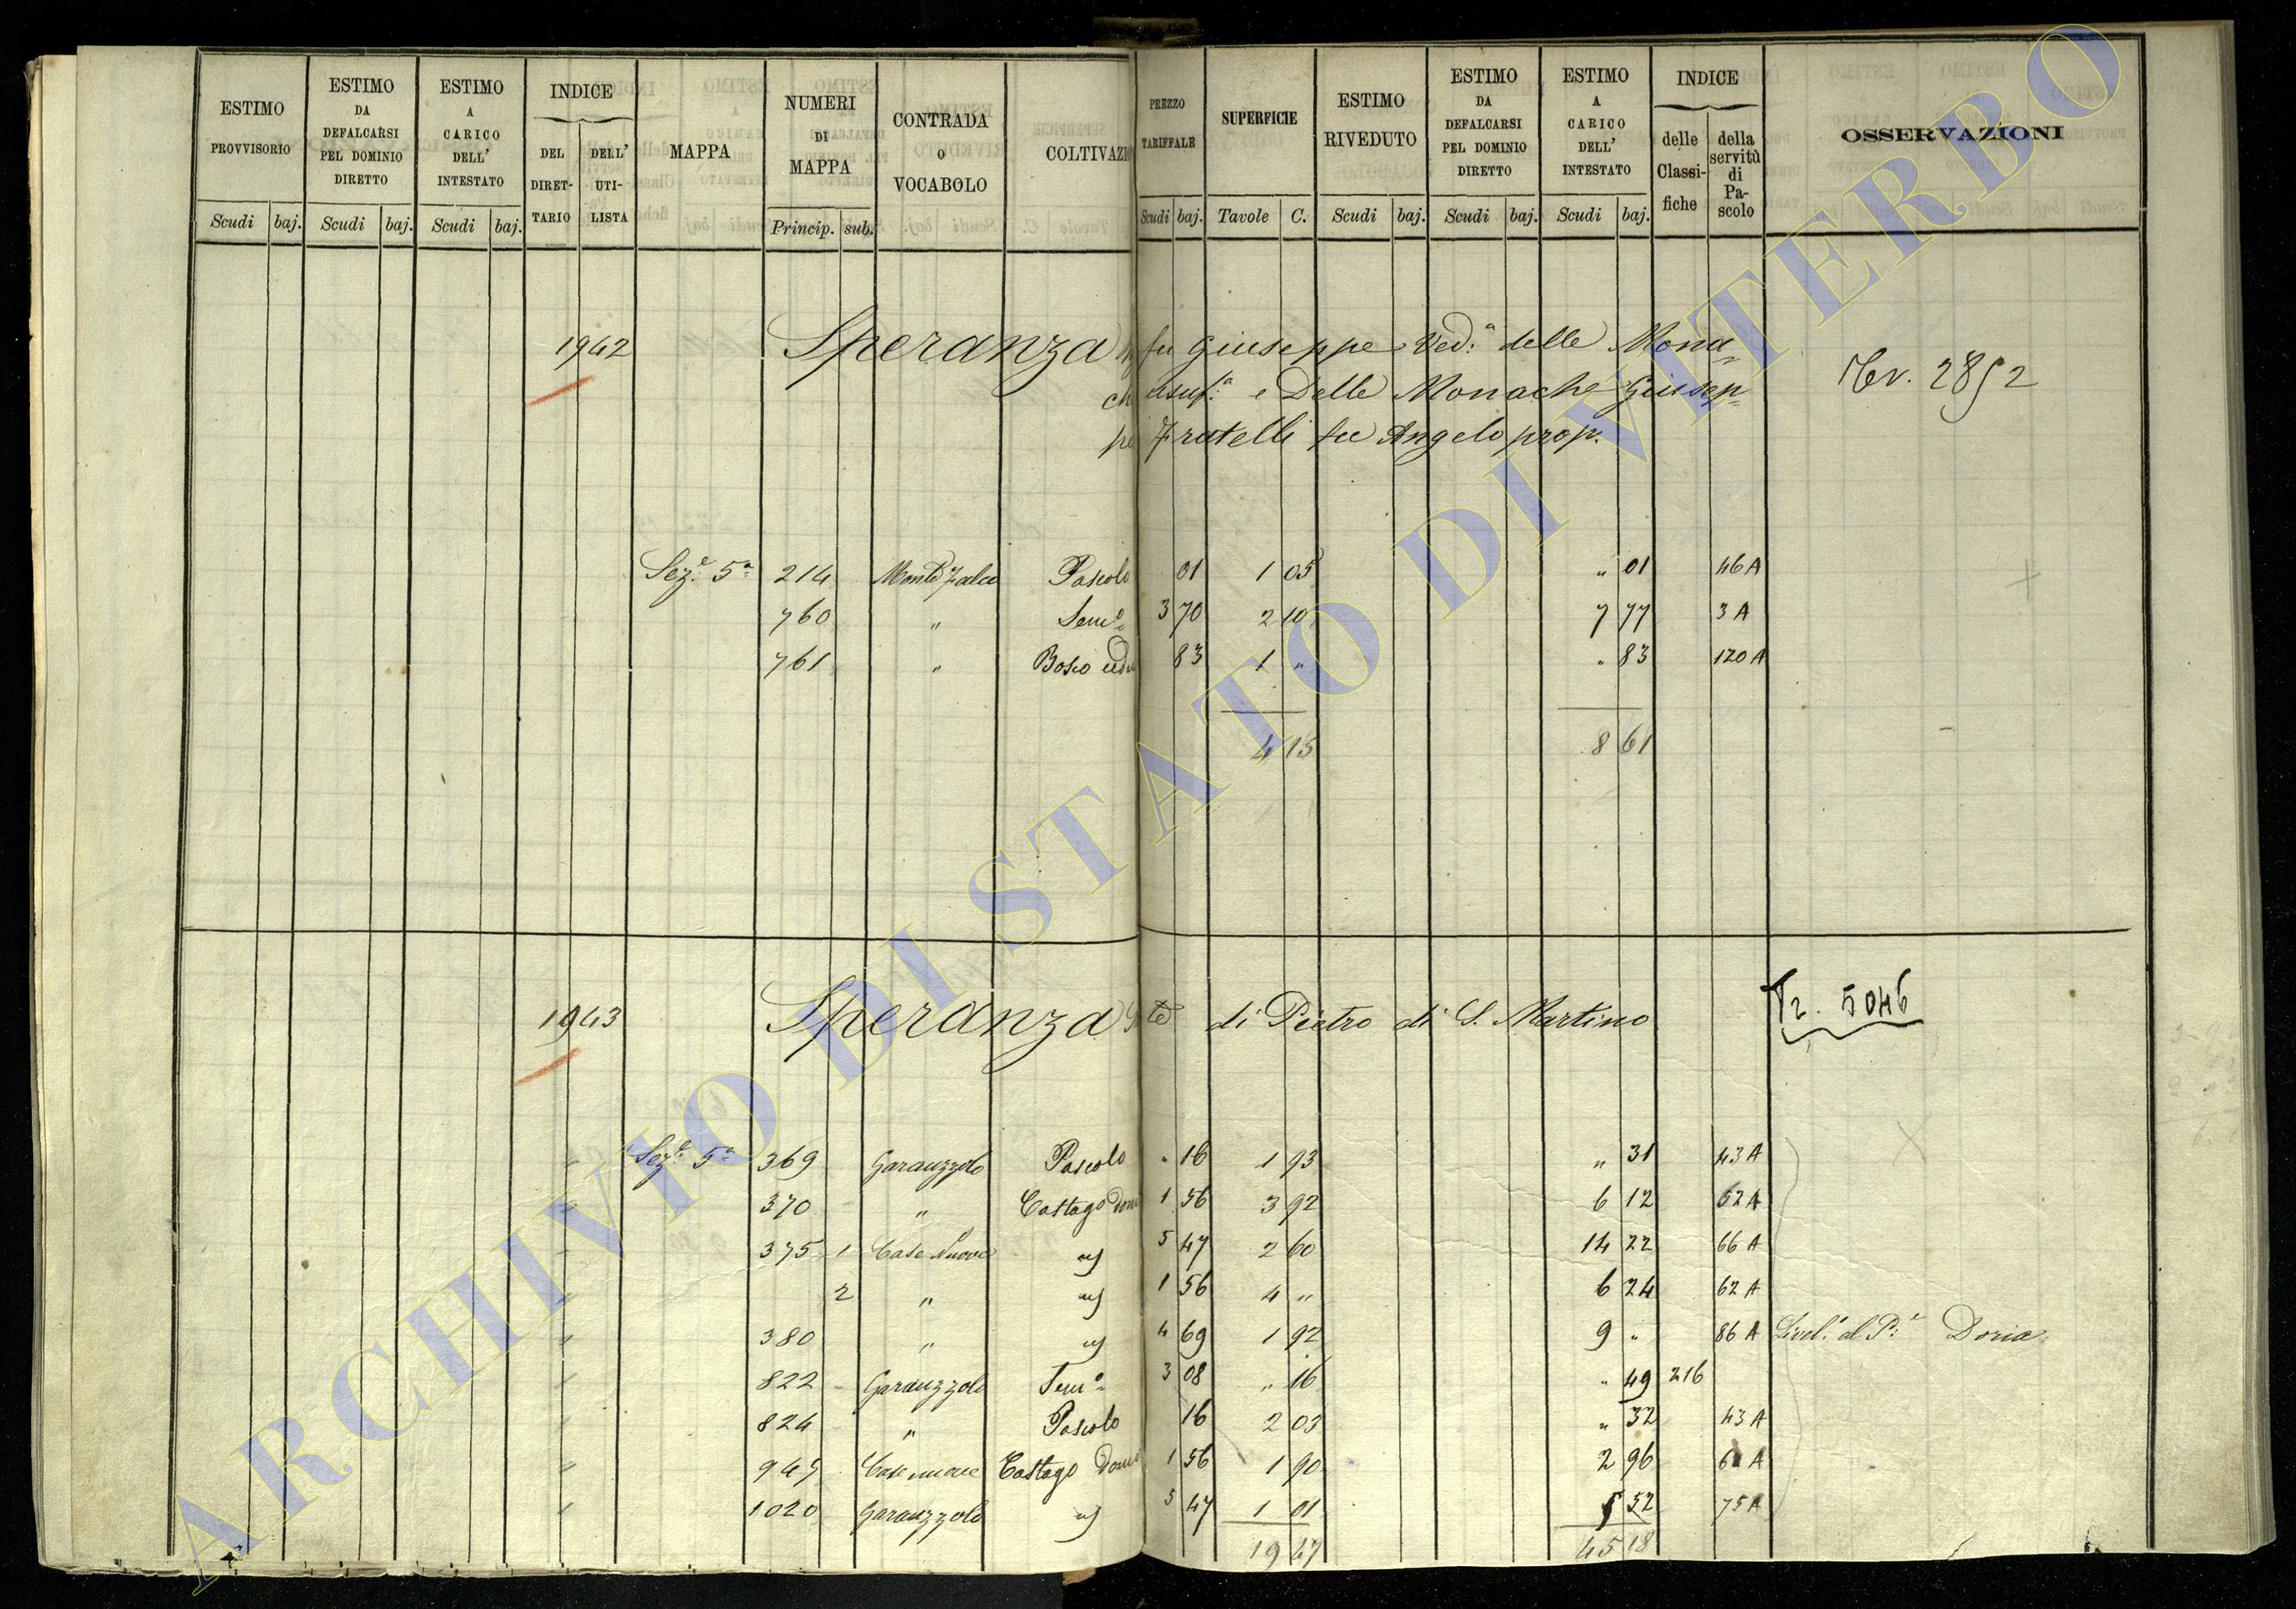 ESTIMO PROVVISORIO | ESTIMO DA DEFALCARSI PEL DOMINIO DIRETTO | ESTIMO A CARICO DELL' INTESTATO | INDICE DEL DIRET-TARIO | DELL' UTI-LISTA | MAPPA | NUMERI DI MAPPA | CONTRADA O VOCABOLO | COLTIVAZI | PREZZO TARIFFALE | SUPERFICIE | ESTIMO RIVEDUTO | ESTIMO DA DEFALCARSI PEL DOMINIO DIRETTO | ESTIMO A CARICO DELL' INTESTATO | INDICE delle Classi-fiche | della servitù di Pa-scolo | OSSERVAZIONI
Scudi baj. | Scudi baj. | Scudi baj. | Princip. sub. | Scudi baj. | Tavole C. | Scudi baj. | Scudi baj. | Scudi baj.
1942 Speranza fu Giuseppe Ved.a delle Mona=
ch usuf.a e Delle Monache Giusep=
pe Fratelli fu Angelo prop. 2852
Sez.e 5a 214 Monte Falco Pascolo 01 1 05 " 01 46 A
760 " Sem.o 3 70 2 10 7 77 3 A
761 " Bosco cedu 83 1 " " 83 120 A
4 15 8 61
1943 Speranza di Pietro di S. Martino Tr. 5046
Sez.e 5a 369 Garauzzolo Pascolo " 16 1 93 " 31 43 A
370 " Castag.o Dom 1 56 3 92 6 12 62 A
375 1 Case Nuove 5 47 2 60 14 22 66 A
2 " 1 56 4 " 6 24 62 A
380 " 4 69 1 92 9 " 86 A Livel.o al P.e Doria
822 Garauzzolo Sem.o 3 08 " 16 " 49 216
824 " Pascolo 16 2 03 " 32 43 A
945 Case nuove Castag.o Dom 1 56 1 90 2 96 A
1020 Garauzzolo 5 47 1 01 5 52 75 A
19 47 45 18
ARCHIVIO DI STATO DI VITERBO